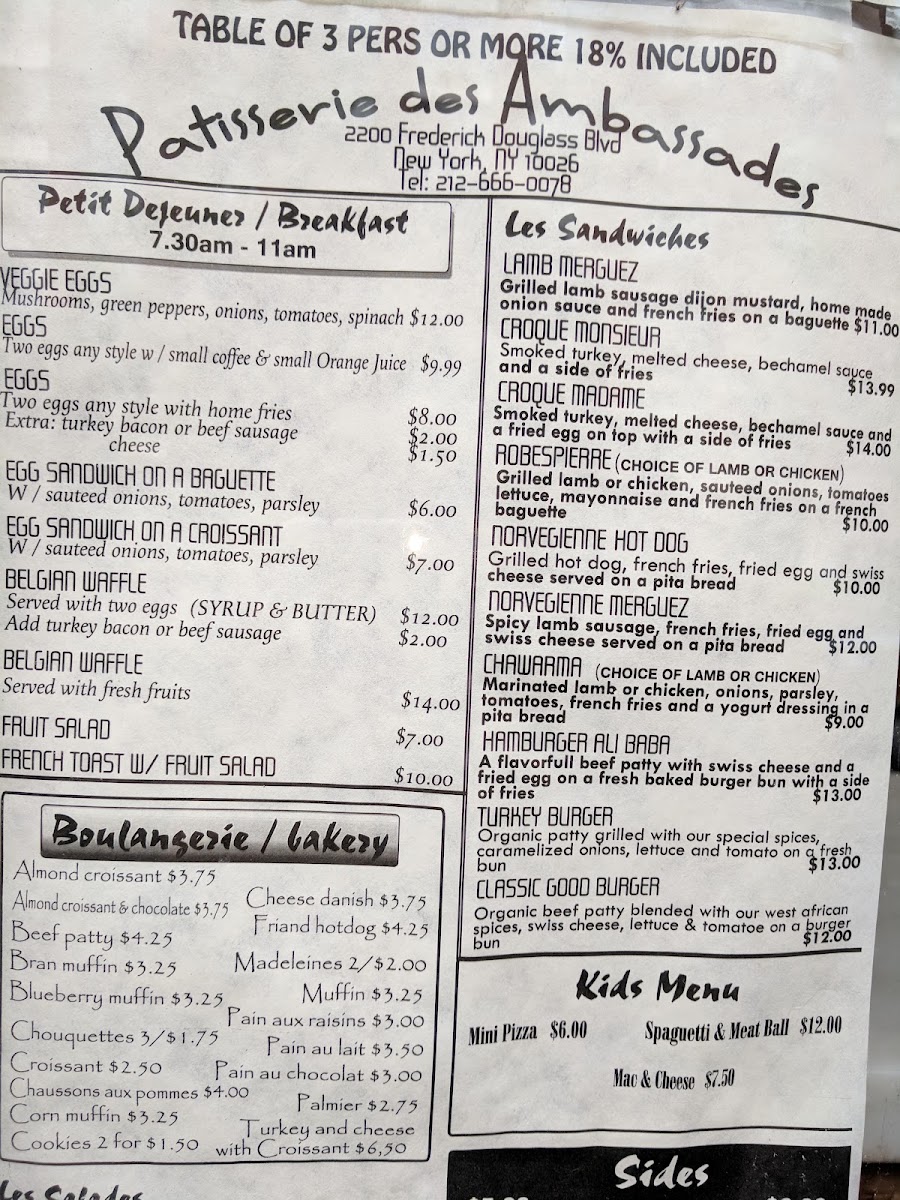 TABLE OF 3 PERS OR MORE 18% INCLUDED
Patisserie des Ambassades
2200 Frederick Douglass Blvd
New York, NY 10026
Tel: 212-666-0078
Petit Dejeuner / Breakfast
7.30am - 11am
VEGGIE EGGS
Mushrooms, green peppers, onions, tomatoes, spinach $12.00
EGGS
Two eggs any style w / small coffee & small Orange Juice $9.99
EGGS
Two eggs any style with home fries $8.00
Extra: turkey bacon or beef sausage $2.00
cheese $1.50
EGG SANDWICH ON A BAGUETTE
W / sauteed onions, tomatoes, parsley $6.00
EGG SANDWICH ON A CROISSANT
W / sauteed onions, tomatoes, parsley $7.00
BELGIAN WAFFLE
Served with two eggs (SYRUP & BUTTER) $12.00
Add turkey bacon or beef sausage $2.00
BELGIAN WAFFLE
Served with fresh fruits $14.00
FRUIT SALAD $7.00
FRENCH TOAST W/ FRUIT SALAD $10.00
Boulangerie / bakery
Almond croissant $3.75
Almond croissant & chocolate $3.75
Beef patty $4.25
Bran muffin $3.25
Blueberry muffin $3.25
Chouquettes 3/$1.75
Croissant $2.50
Chaussons aux pommes $4.00
Corn muffin $3.25
Cookies 2 for $1.50
Cheese danish $3.75
Friand hotdog $4.25
Madeleines 2/$2.00
Muffin $3.25
Pain aux raisins $3.00
Pain au lait $3.50
Pain au chocolat $3.00
Palmier $2.75
Turkey and cheese
with Croissant $6,50
Les Salades
Les Sandwiches
LAMB MERGUEZ
Grilled lamb sausage dijon mustard, home made
onion sauce and french fries on a baguette $11.00
CROQUE MONSIEUR
Smoked turkey, melted cheese, bechamel sauce
and a side of fries $13.99
CROQUE MADAME
Smoked turkey, melted cheese, bechamel sauce and
a fried egg on top with a side of fries $14.00
ROBESPIERRE (CHOICE OF LAMB OR CHICKEN)
Grilled lamb or chicken, sauteed onions, tomatoes
lettuce, mayonnaise and french fries on a french
baguette $10.00
NORVEGIENNE HOT DOG
Grilled hot dog, french fries, fried egg and swiss
cheese served on a pita bread $10.00
NORVEGIENNE MERGUEZ
Spicy lamb sausage, french fries, fried egg and
swiss cheese served on a pita bread $12.00
CHAWARMA (CHOICE OF LAMB OR CHICKEN)
Marinated lamb or chicken, onions, parsley,
tomatoes, french fries and a yogurt dressing in a
pita bread $9.00
HAMBURGER ALI BABA
A flavorfull beef patty with swiss cheese and a
fried egg on a fresh baked burger bun with a side
of fries $13.00
TURKEY BURGER
Organic patty grilled with our special spices,
caramelized onions, lettuce and tomato on a fresh
bun $13.00
CLASSIC GOOD BURGER
Organic beef patty blended with our west african
spices, swiss cheese, lettuce & tomatoe on a burger
bun $12.00
Kids Menu
Mini Pizza $6.00
Spaguetti & Meat Ball $12.00
Mac & Cheese $7.50
Sides